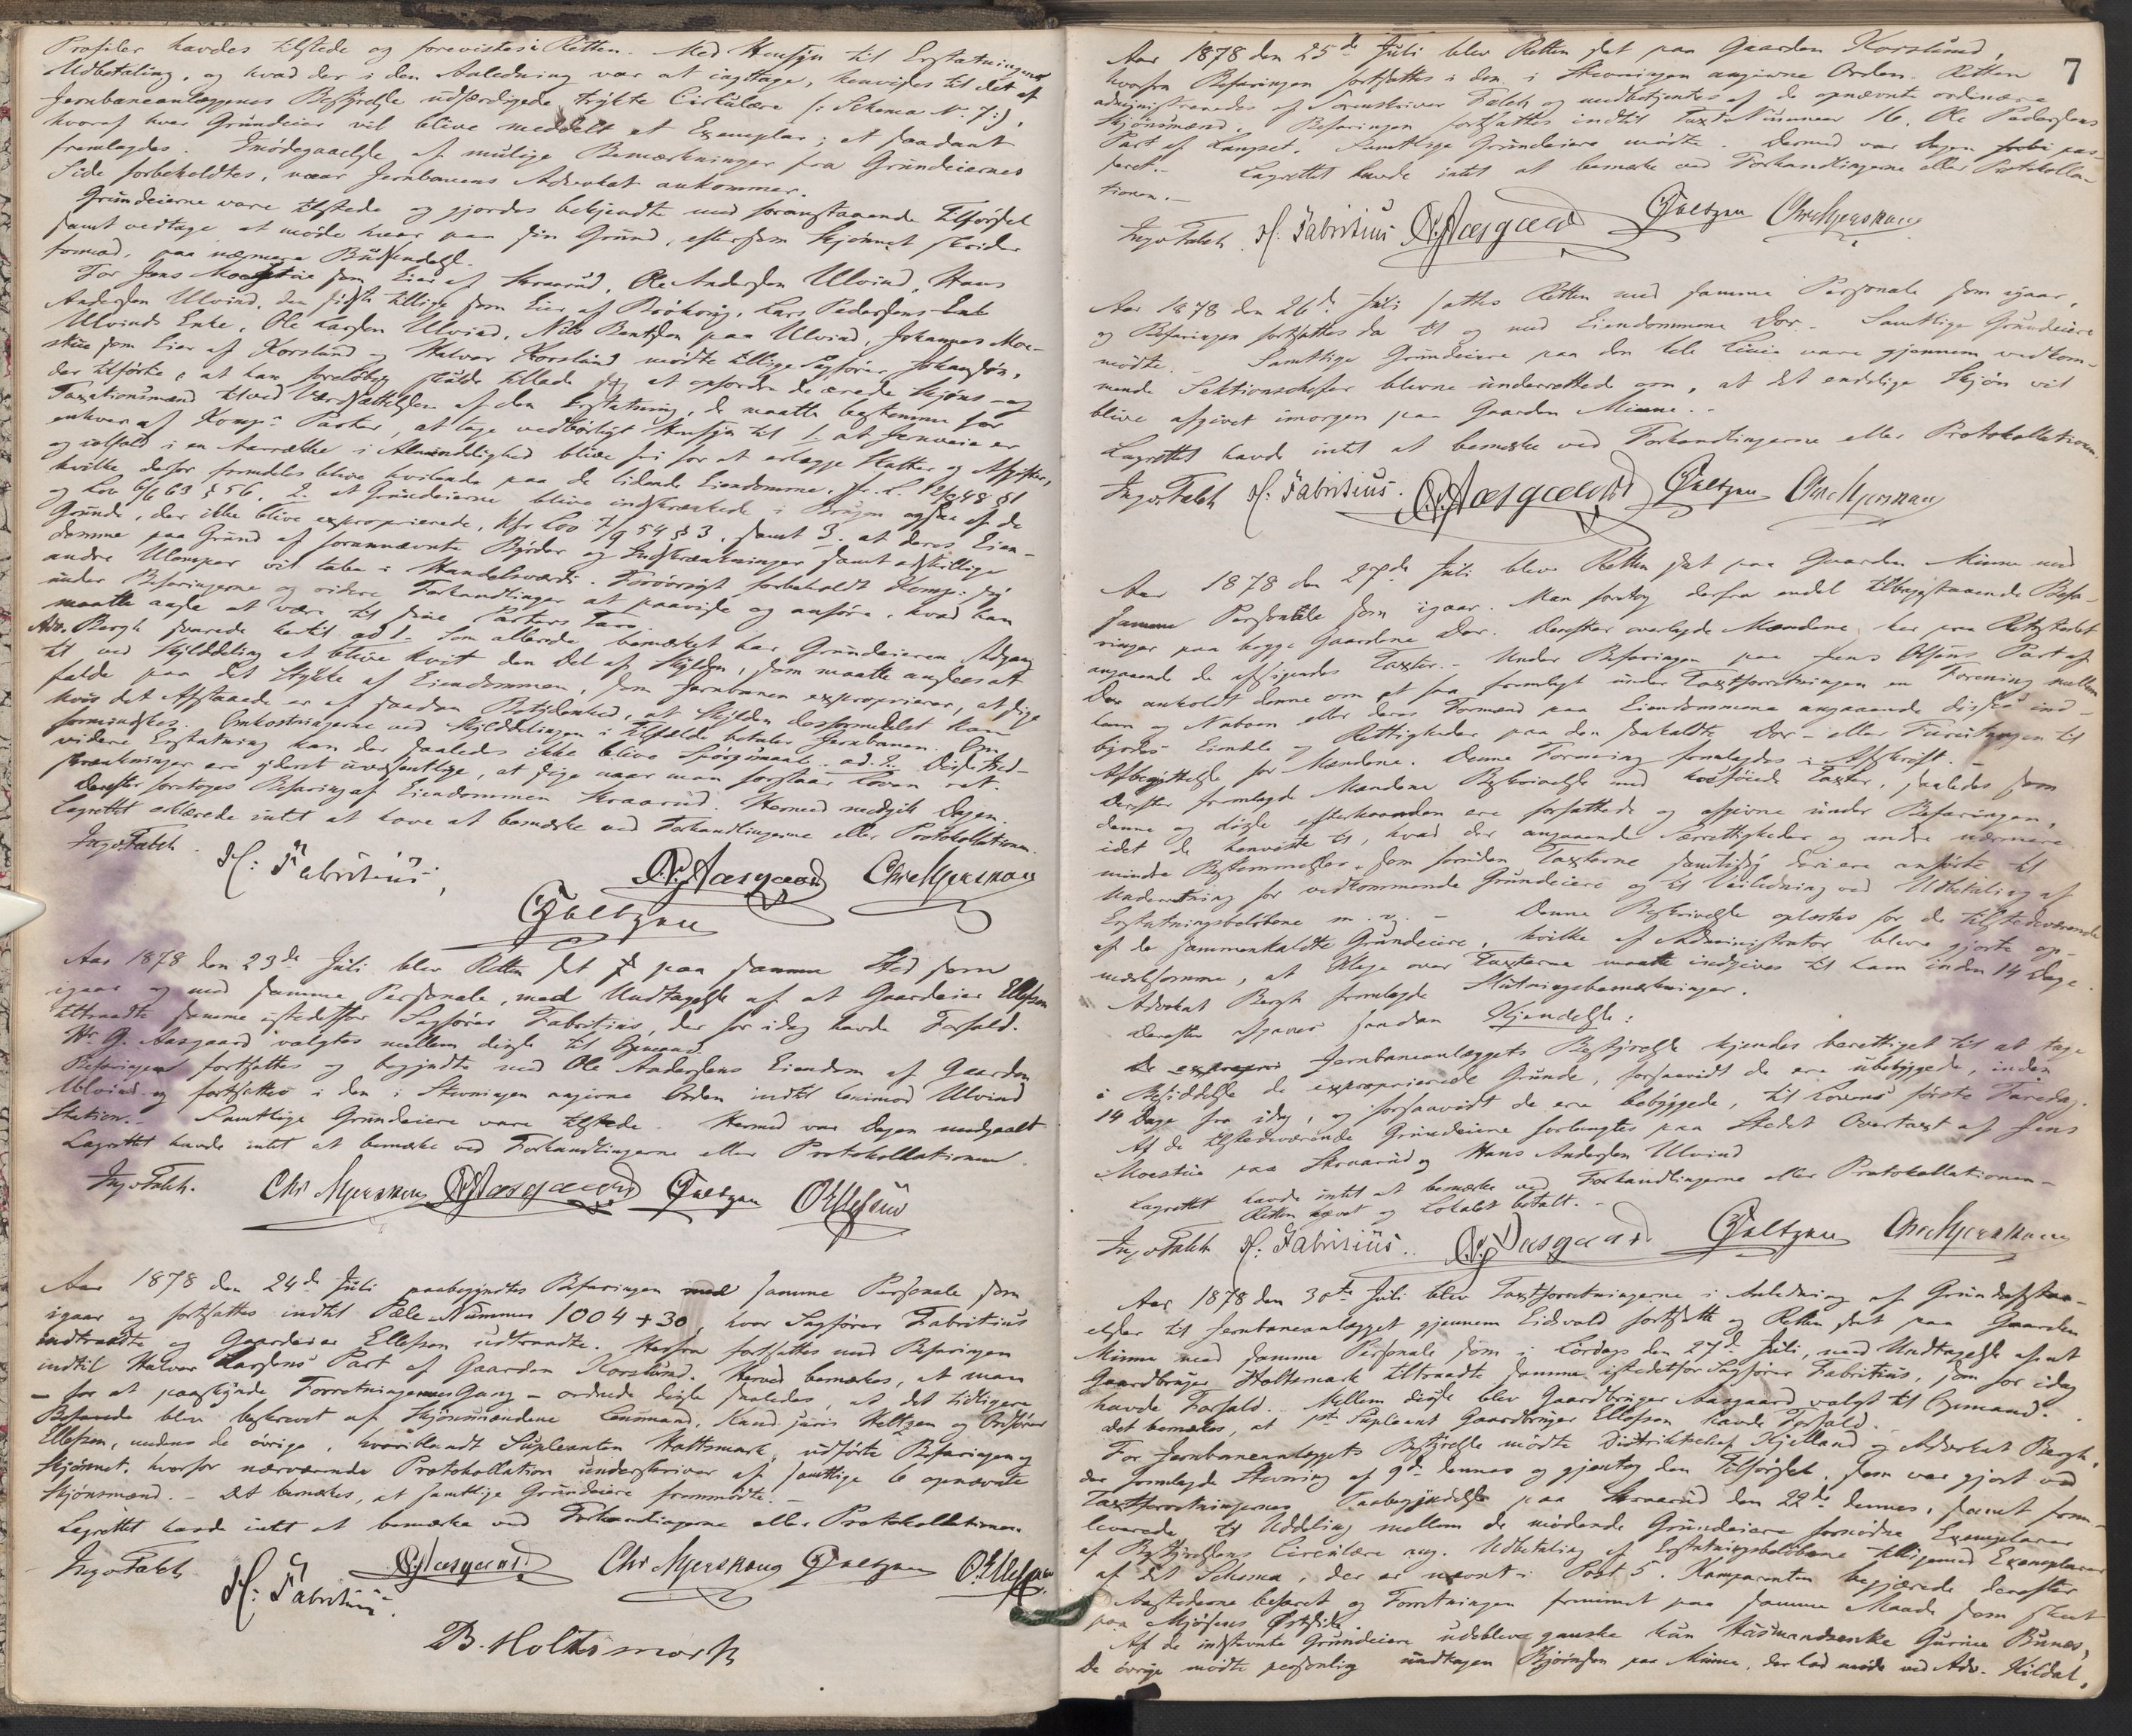 Profiler havdes tilstede og forevistes i Retten. Med Hensyn til Erstatningens
Udbetaling, og hvad der i den Anledning var at iagttage, henvises til det af
Jernbaneanlæggenes Bestyrelse udfærdigede trykte Cirkulære (: Schema No 7:),
hvoraf hver Grundeier vil blive meddelt et Exemplar; et saadant
fremlagdes. Imødegaaelse af mulige Bemærkninger fra Grundeiernes
Side forbeholdtes, naar Jernbanens Advokat ankommer.
Grundeierne vare tilstede og gjordes bekjendte med foranstaaende Tilførsel
samt vedtage at møde hver paa sin Grund, eftersom Skjønnet skrider
fremad, paa nærmere Budsendelse.
For Jens Moestue som Eier af Skraarud, Ole Andersen Ulvind, Hans
Andersen Ulvind, den sidste tillige som Eier af Brøkrug, Lars Pedersens Enke
Ulvinds Enke, Ole Larsen Ulvind, Nils Bentsen paa Ulvind, Johannes Moe-
stue som Eier af Korslund og Halvor Korslund mødte tillige Sagfører Johansøn,
der tilførte, at han foreløbig skulde tillade sig at opfordre de ærede Skjøns- og
Taxationsmænd til ved Værdsættelsen af den Erstatning, de maatte bestemme for
enhver af Komp:s Parter, at tage vedbørligt Hensyn til 1. at Jernveie er
og ialfald i en Aarrække i Almindelighed blive fri for at erlægge Skatter og Afgifter,
hvilke derfor fremdeles blive hvilende paa de lidende Eiendomme, jfr. L. 12/8 48 § 1
og Lov 6/6 63 § 56. 2. at Grundeierne blive indskrænkede i Brugen ogsaa af de
Grunde, der ikke blive exproprierede, kfr Lov 7/9 54 § 3, samt 3. at deres Eien-
domme paa Grund af forannævnte Byrder og Indskrænkninger samt adskillige
andre Ulemper vil tabe i Handelsværdi. Forøvrigt forbeholdt Komp: sig
under Befaringerne og videre Forhandlinger at paavise og anføre, hvad han
maatte agte at være til sine Parters Tarv.
Adv. Bergh svarede hertil ad 1. Som allerede bemærket har Grundeieren Adgang
til ved Skylddeling at blive kvit den Del af Skylden, som maatte ansees at
falde paa det Stykke af Eiendommen, som Jernbanen exproprierer, at sige
hvis det Afstaaede er af saadan Betydenhed, at Skylden derformedelst kan
formindskes. Omkostningerne ved Skylddelingen i Tilfælde betaler Jernbanen. Om
videre Erstatning kan der saaledes ikke blive Spørgsmaal. ad. 2. Disse Ind-
skrænkninger ere yderst uvæsentlige, at sige naar man forstaar Loven ret.
Derefter foretoges Befaring af Eiendommen Skraarud. Hermed medgik Dagen.
Lagrettet erklærede intet at have at bemærke ved Forhandlingerne eller Protokollationen.
Ingv Falch. H: Fabritius, N. Aasgaard Chr Mjerskaug
Gjeltzen
Aar 1878 den 23de Juli blev Retten sat paa samme Sted som
igaar og med samme Personale, med Undtagelse af at Gaardeier Ellefsen
tiltraadte samme istedetfor Sagfører Fabritius, der for idag havde Forfald.
Hr. G. Aasgaard valgtes mellem disse til Opmand.
Befaringen fortsattes og begyndte med Ole Andersens Eiendom af Gaarden
Ulvind og fortsattes i den i Stevningen angivne Orden indtil henimod Ulvind
Station. Samtlige Grundeiere vare tilstede. Hermed var Dagen medgaaet.
Lagrettet havde intet at bemærke ved Forhandlingerne eller Protokollationen.
Ingv Falch. Chr Mjerskaug N. Aasgaard Gjeltzen O Ellefsen
Aar 1878 den 24de Juli paabegyndtes Befaringen med samme Personale som
igaar og fortsattes indtil Pæle Nummer 1004 + 30, hvor Sagfører Fabritius
indtraadte og Gaardeier Ellefsen udtraadte. Herfra fortsattes med Befaringen
indtil Halvor Larsens Part af Gaarden Korslund. Herved bemærkes, at man
- for at paaskynde Forretningernes Gang - ordnede disse saaledes, at det tidligere
Befarede blev beskrevet af Skjønsmændene Lensmand, Kand. juris Heltzen og Ordfører
Ellefsen, medens de øvrige, hvoriblandt Supleanten Holtsmark, udførte Befaringen og
Skjønnet, hvorfor nærværende Protokollation underskrives af samtlige 6 opnævnte
Skjønsmænd. - Det bemærkes, at samtlige Grundeiere fremmødte. -
Lagrettet havde intet at bemærke ved Forhandlingerne eller Protokollationen.
Ingv Falch H: Fabritius. N. Aasgaard Chr Mjerskaug Gjeltzen O Ellefsen.
B. Holtsmark
7
Aar 1878 den 25de Juli blev Retten sat paa Gaarden Korslund,
hvorfra Befaringen fortsattes i den i Stevningen angivne Orden. Retten
administreredes af Sorenskriver Falch og medbetjentes af de opnævnte ordinære
Skjønsmænd. Befaringen fortsattes indtil Taxt Nummer 16, Ole Pedersens
Part af Langset. Samtlige Grundeiere mødte. Dermed var Dagen forbi pas-
seret. - Lagrettet havde intet at bemærke ved Forhandlingerne eller Protokolla-
tionen. -
Ingv Falch H. Fabritius N. Aasgaard Gjeltzen Chr Mjerskaug
Aar 1878 den 26de Juli sattes Retten med samme Personale som igaar,
og Befaringen fortsattes da til og med Eiendommene Dor. - Samtlige Grundeiere
mødte. - Samtlige Grundeiere paa den hele Linie vare gjennem vedkom-
mende Sektionschefer blevne underrettede om, at det endelige Skjøn vil
blive afgivet imorgen paa Gaarden Minne. -
Lagrettet havde intet at bemærke ved Forhandlingerne eller Protokollationen.
Ingv Falch H. Fabritius. N. Aasgaard Gjeltzen Chr Mjerskaug
Aar 1878 den 27de Juli blev Retten sat paa Gaarden Minne med
samme Personale som igaar. Man foretog derfra endel tilbagestaaende Befa-
ringer paa begge Gaardene Dor. Derefter overlagde Mændene her paa Retsstedet
angaaende de afsigendes Taxter. - Under Befaringen paa Jens Olsens Part af
Dor anholdt denne om at faa fremlagt under Taxtforretningen en Forening mellem
ham og Naboen eller deres Formænd paa Eiendommene angaaende disses ind-
byrdes Eiendele og Rettigheder paa den saakaldte Dor- eller til
Afbenyttelse for Mændene. Denne Forening fremlagdes i Afskrift. -
Derefter fremlagde Mændene Beskrivelse med hosføiede Taxter, saaledes som
denne og disse efterhaanden ere forfattede og afgivne under Befaringen,
idet de henviste til, hvad der angaaende Særrettigheder og andre nærmere
mindre Bestemmelser som foruden Taxterne samtidig deri ere anførte til
Underretning for vedkommende Grundeiere og til Veiledning ved Udbetaling af
Erstatningsbeløbene m. v. - Denne Beskrivelse oplæstes for de tilstedeværende
af de sammenkaldte Grundeiere, hvilke af Administrator bleve gjorte op-
mærksomme, at Klage over Taxterne maatte indgives til ham inden 14 Dage.
Advokat Bergh fremlagde Slutningsbemærkninger.
Derefter afgaves saadan Kjendelse:
De exproprie Jernbaneanlæggets Bestyrelse kjendes berettiget til at tage
i Besiddelse de exproprierede Grunde, forsaavidt de ere ubebyggede, inden
14 Dage fra idag, og forsaavidt de ere bebyggede, til Lovens første Faredag.
Af de tilstedeværende Grundeiere forlangtes paa Stedet Overtaxt af Jens
Moestue paa Skraarud og Hans Andersen Ulvind
Lagrettet havde intet at bemærke ved Forhandlingerne eller Protokollationen. -
Retten hævet og Lokalet betalt. -
Ingv Falch H. Fabritius. N. Aasgaard Gjeltzen Chr Mjerskaug
Aar 1878 den 30te Juli blev Taxtforretningerne i Anledning af Grundafstaa-
elser til Jernbaneanlægget gjennem Eidsvold fortsatte og Retten sat paa Gaarden
Minne med samme Personale som i Lørdags den 27de Juli, med Undtagelse af at
Gaardbruger Holtsmark tiltraadte samme istedetfor Sagfører Fabritius, som for idag
havde Forfald. Mellem disse blev Gaardbruger Aasgaard valgt til Opmand.
Det bemærkes, at 1ste Supleant Gaardbruger Ellefsen havde Forfald.
For Jernbaneanlæggets Bestyrelse mødte Distriktschef Kjelland og Advokat Bergh,
der fremlagde Stevning af 9de dennes og gjentog den Tilførsel, som var gjort ved
Taxtforretningernes Paabegyndelse paa Skraarud den 22de dennes, samt frem-
leverede til Uddeling mellem de mødende Grundeiere fornødne Exemplarer
af Bestyrelsens Circulære ang. Udbetaling af Erstatningsbeløbene tilligemed Exemplarer
af det Schema, der er nævnt i Post 5. Komparenten begjærede derefter
Aastederne befaret og Forretningen fremmet paa samme Maade som skeet
paa Mjøsens Østside.
Af de indstevnte Grundeiere udebleve ganske kun Husmandsenke Gurine Bunes,
De øvrige mødte personlig undtagen Bjørnsen paa Minne, der lod møde ved Adv. Kildal,